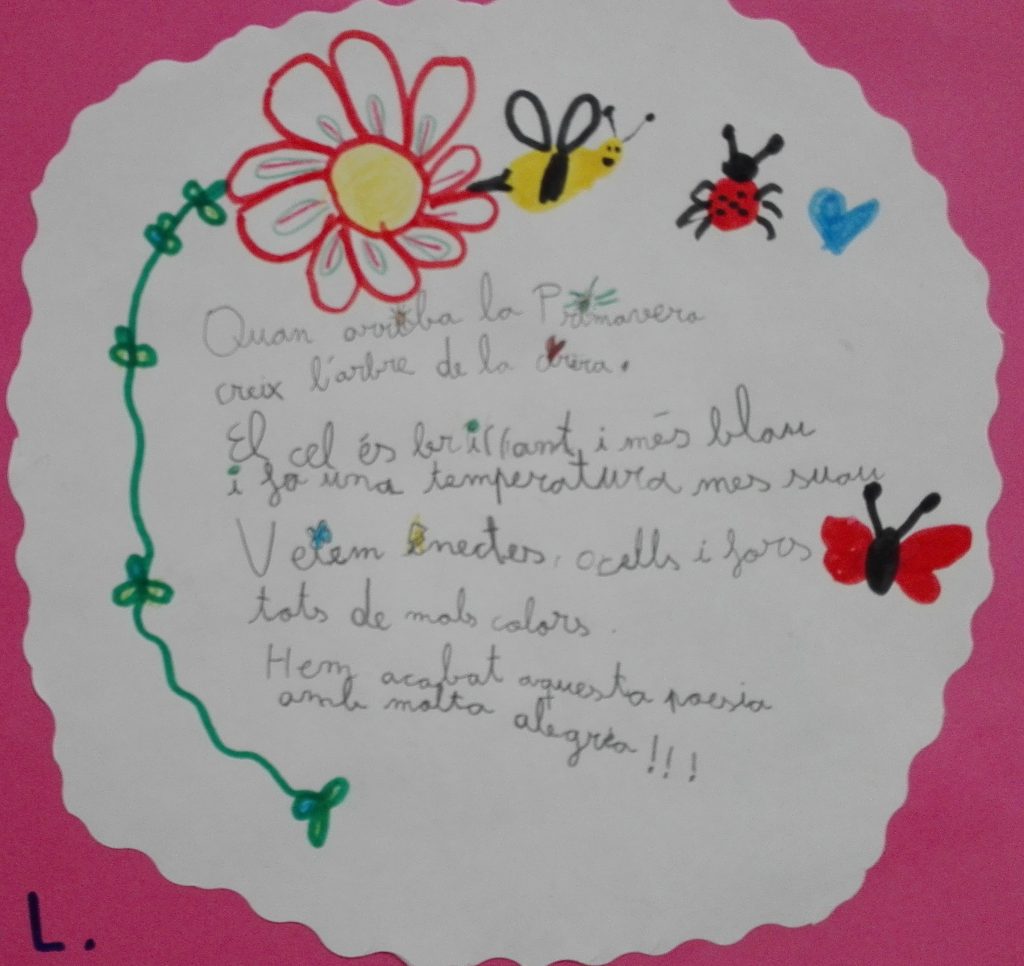 Quan arriba la Primavera
creix l'arbre de la cirera.
El cel és brillant, i més blau
i fa una temperatura mes suau
Vetem inectes, ocells i fors
tots de mols colors.
Hem acabat aquesta poesia
amb molta alegria!!!
L.